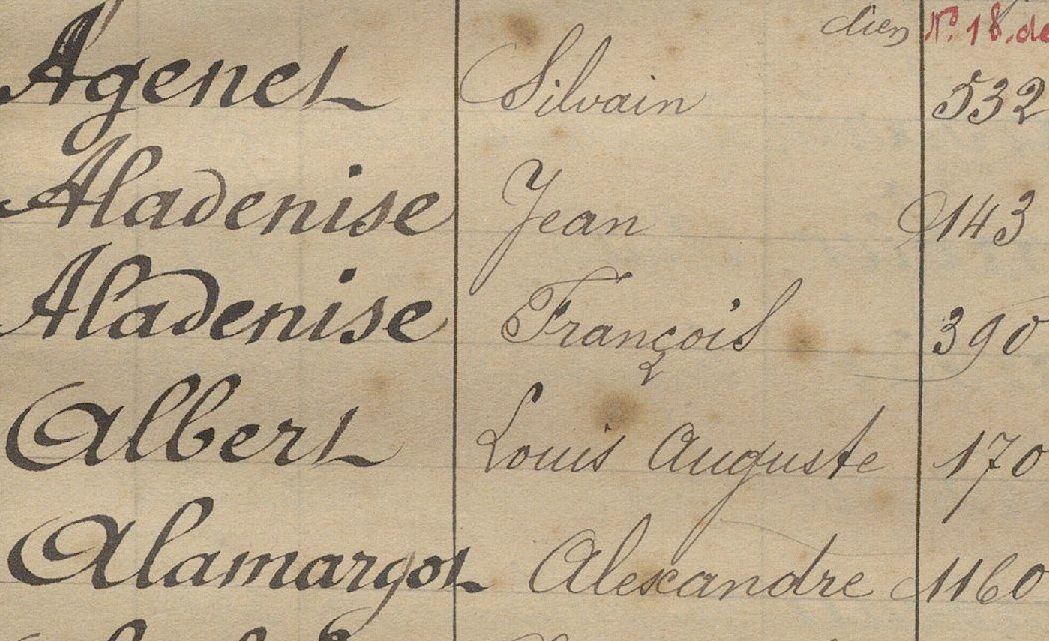 N° 18. de
Agenet Silvain 532
Aladenise Jean 143
Aladenise François 390
Albert Louis Auguste 170
Alamargot Alexandre 1160